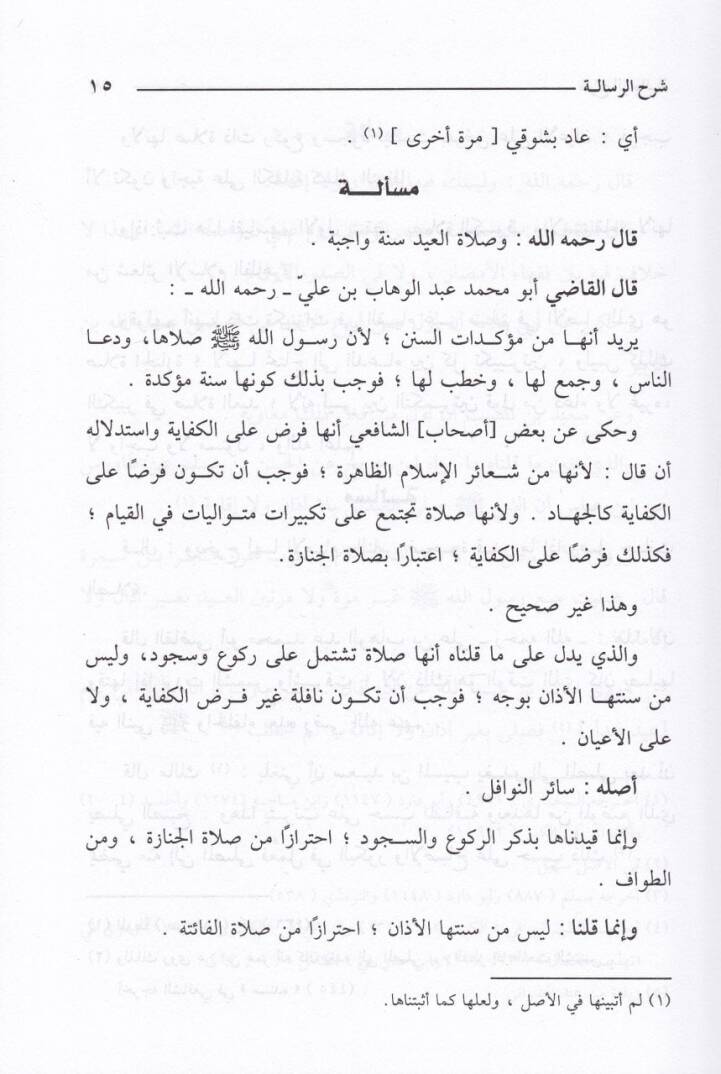 شرح الرسالة ١٥
أي : عاد بشوقي [ مرة أخرى ] (١) .
مسألة
قال رحمه الله : وصلاة العيد سنة واجبة .
قال القاضي أبو محمد عبد الوهاب بن عليّ ـ رحمه الله ـ :
يريد أنها من مؤكدات السنن ؛ لأن رسول الله ﷺ صلاها، ودعا
الناس ، وجمع لها ، وخطب لها ؛ فوجب بذلك كونها سنة مؤكدة .
وحكى عن بعض [أصحاب] الشافعي أنها فرض على الكفاية واستدلاله
أن قال : لأنها من شعائر الإسلام الظاهرة ؛ فوجب أن تكون فرضًا على
الكفاية كالجهاد . ولأنها صلاة تجتمع على تكبيرات متواليات في القيام ؛
فكذلك فرضًا على الكفاية ؛ اعتبارًا بصلاة الجنازة.
وهذا غير صحيح .
والذي يدل على ما قلناه أنها صلاة تشتمل على ركوع وسجود، وليس
من سنتها الأذان بوجه ؛ فوجب أن تكون نافلة غير فرض الكفاية ، ولا
على الأعيان .
أصله : سائر النوافل .
وإنما قيدناها بذكر الركوع والسجود ؛ احترازًا من صلاة الجنازة ، ومن
الطواف .
وإنما قلنا : ليس من سنتها الأذان ؛ احترازًا من صلاة الفائتة .
(١) لم أتبينها في الأصل ، ولعلها كما أثبتناها.